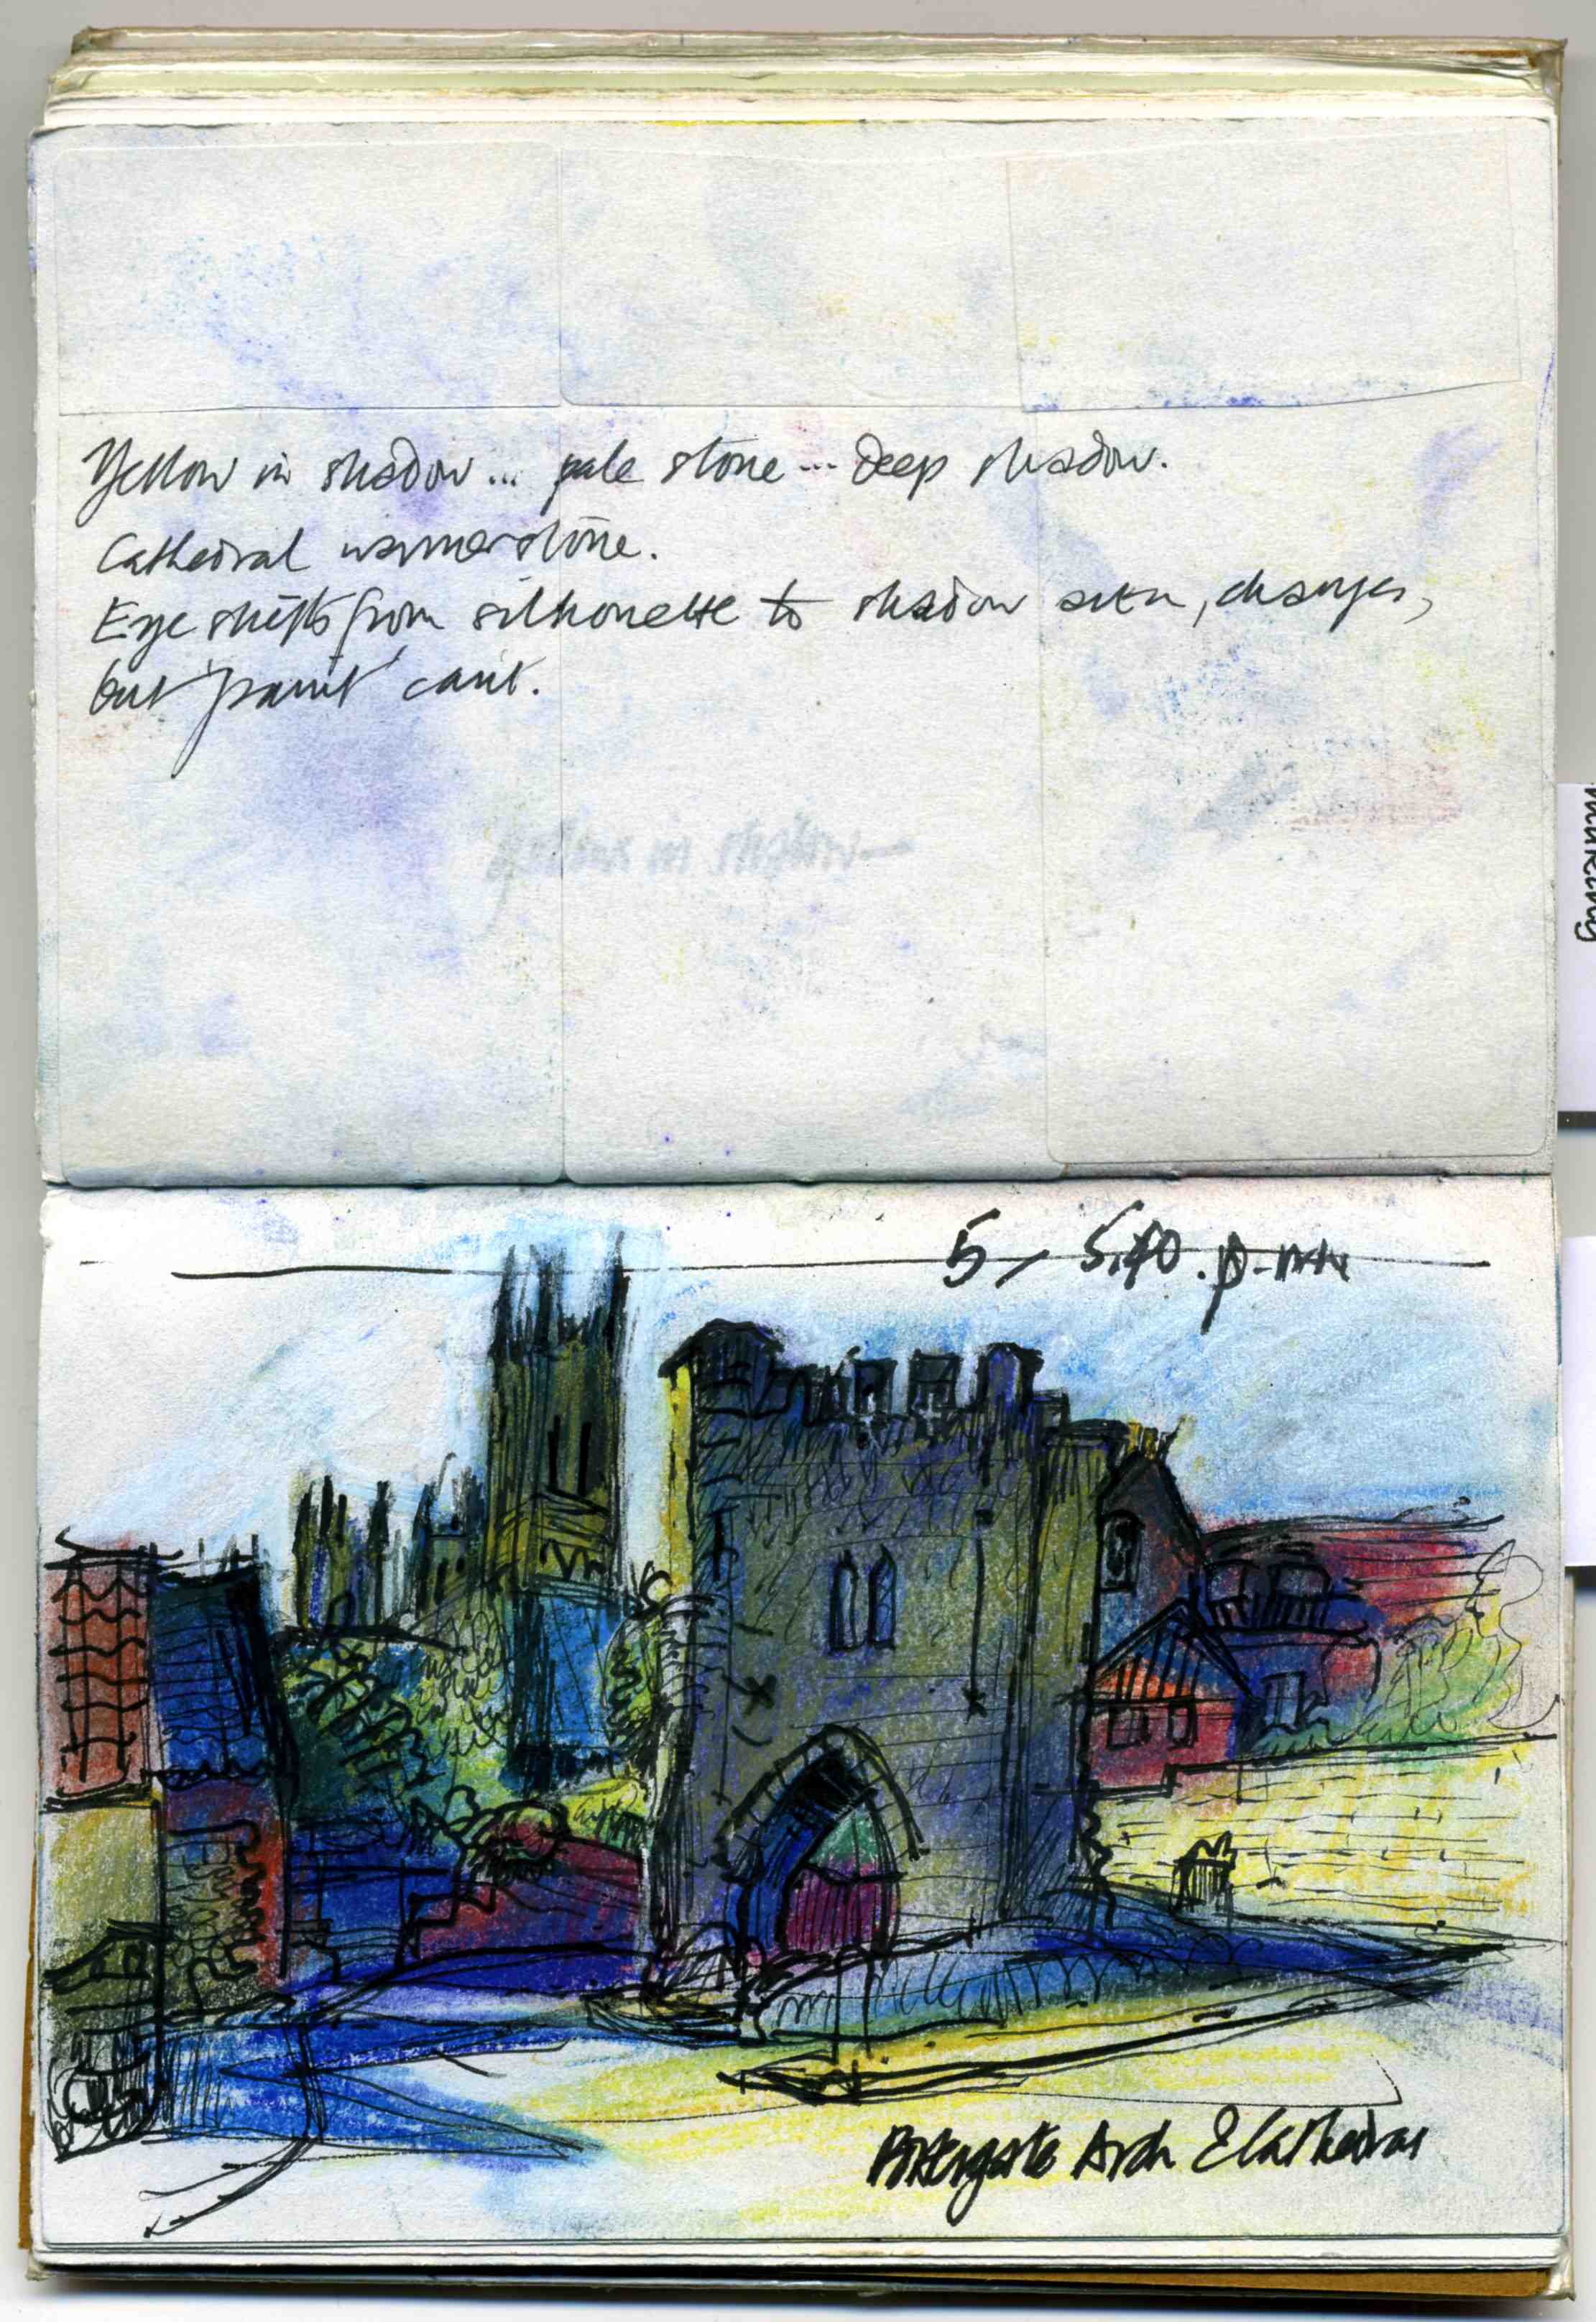 Yellow in shadow... pale stone... deep shadow.
Cathedral warmer stone.
Eye shifts from silhouette to shadow area, changes,
but 'paint' can't.
yellow in shadow—
5 - 5.40. p.m.
Pottergate Arch & Cathedral